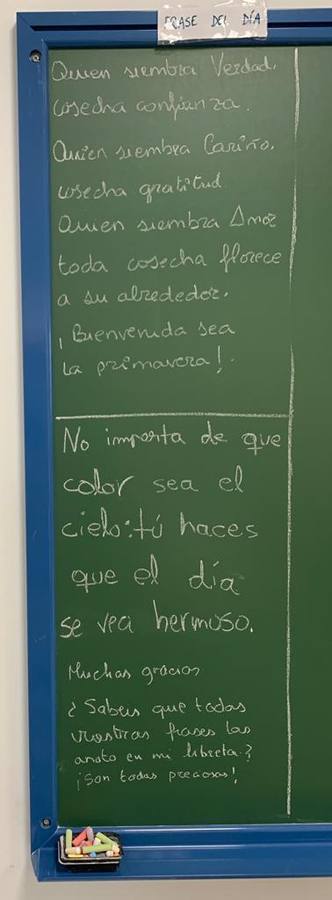 FRASE DEL DÍA
Quien siembra Verdad,
cosecha confianza.
Quien siembra Cariño,
cosecha gratitud.
Quien siembra Amor
toda cosecha florece
a su alrededor.
¡Bienvenida sea
la primavera!.
No importa de que
color sea el
cielo: tú haces
que el día
se vea hermoso.
Muchas gracias
¿Sabeis que todas
vuestras frases las
anoto en mi libreta?
¡Son todas preciosas!